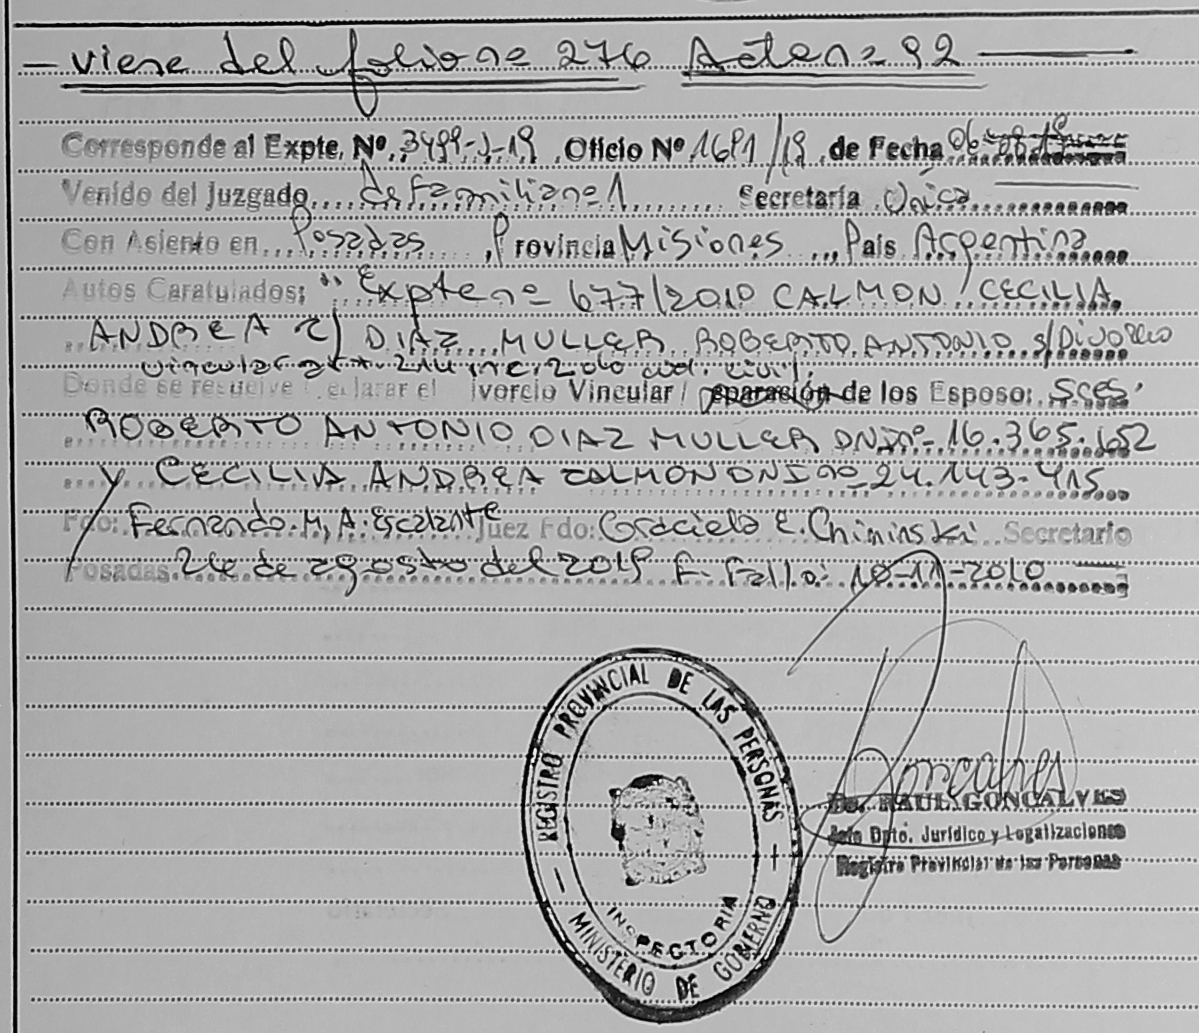 — viene del folio nº 276 Acta nº 92 —
Corresponde al Expte. Nº 3499-J-19 Oficio Nº 1691/19 de Fecha 06-08-19
Venido del Juzgado de Familia nº 1 Secretaría Única
Con Asiento en Posadas Provincia Misiones País Argentina
Autos Caratulados: "Expte nº 677/2010 CALMON CECILIA
ANDREA C/ DIAZ MULLER ROBERTO ANTONIO s/ Divorcio
vincular
Donde se resuelve eclarar el ivorcio Vincular / eparación de los Esposo: Sres.
ROBERTO ANTONIO DIAZ MULLER DNI nº 16.365.652
y CECILIA ANDREA CALMON DNI nº 24.143.415
Fdo: Fernando M, A. Escalante Juez Fdo: Graciela E. Chiminski Secretario
Posadas de agosto del 2019 F. Fallo: 10-11-2010
REGISTRO PROVINCIAL DE LAS PERSONAS
INSPECTORIA
MINISTERIO DE GOBIERNO
Goncalves
Dr. RAUL GONCALVES
Jefe Dpto. Jurídico y Legalizaciones
Registro Provincial de las Personas